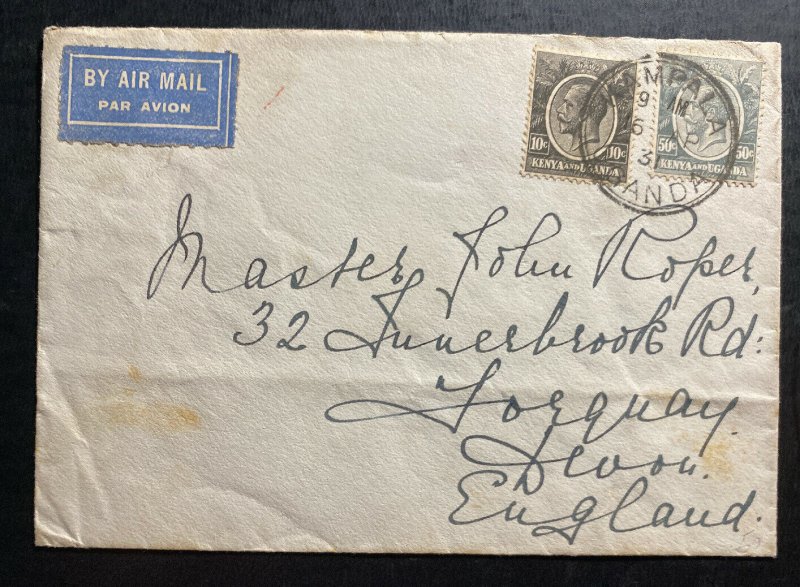 BY AIR MAIL
PAR AVION
10c 10c
KENYA AND UGANDA
50c 50c
KENYA AND UGANDA
KAMPALA
9 M
6
3
Master John Roper,
32 Innerbrook Rd:
Torquay.
Devon.
England.